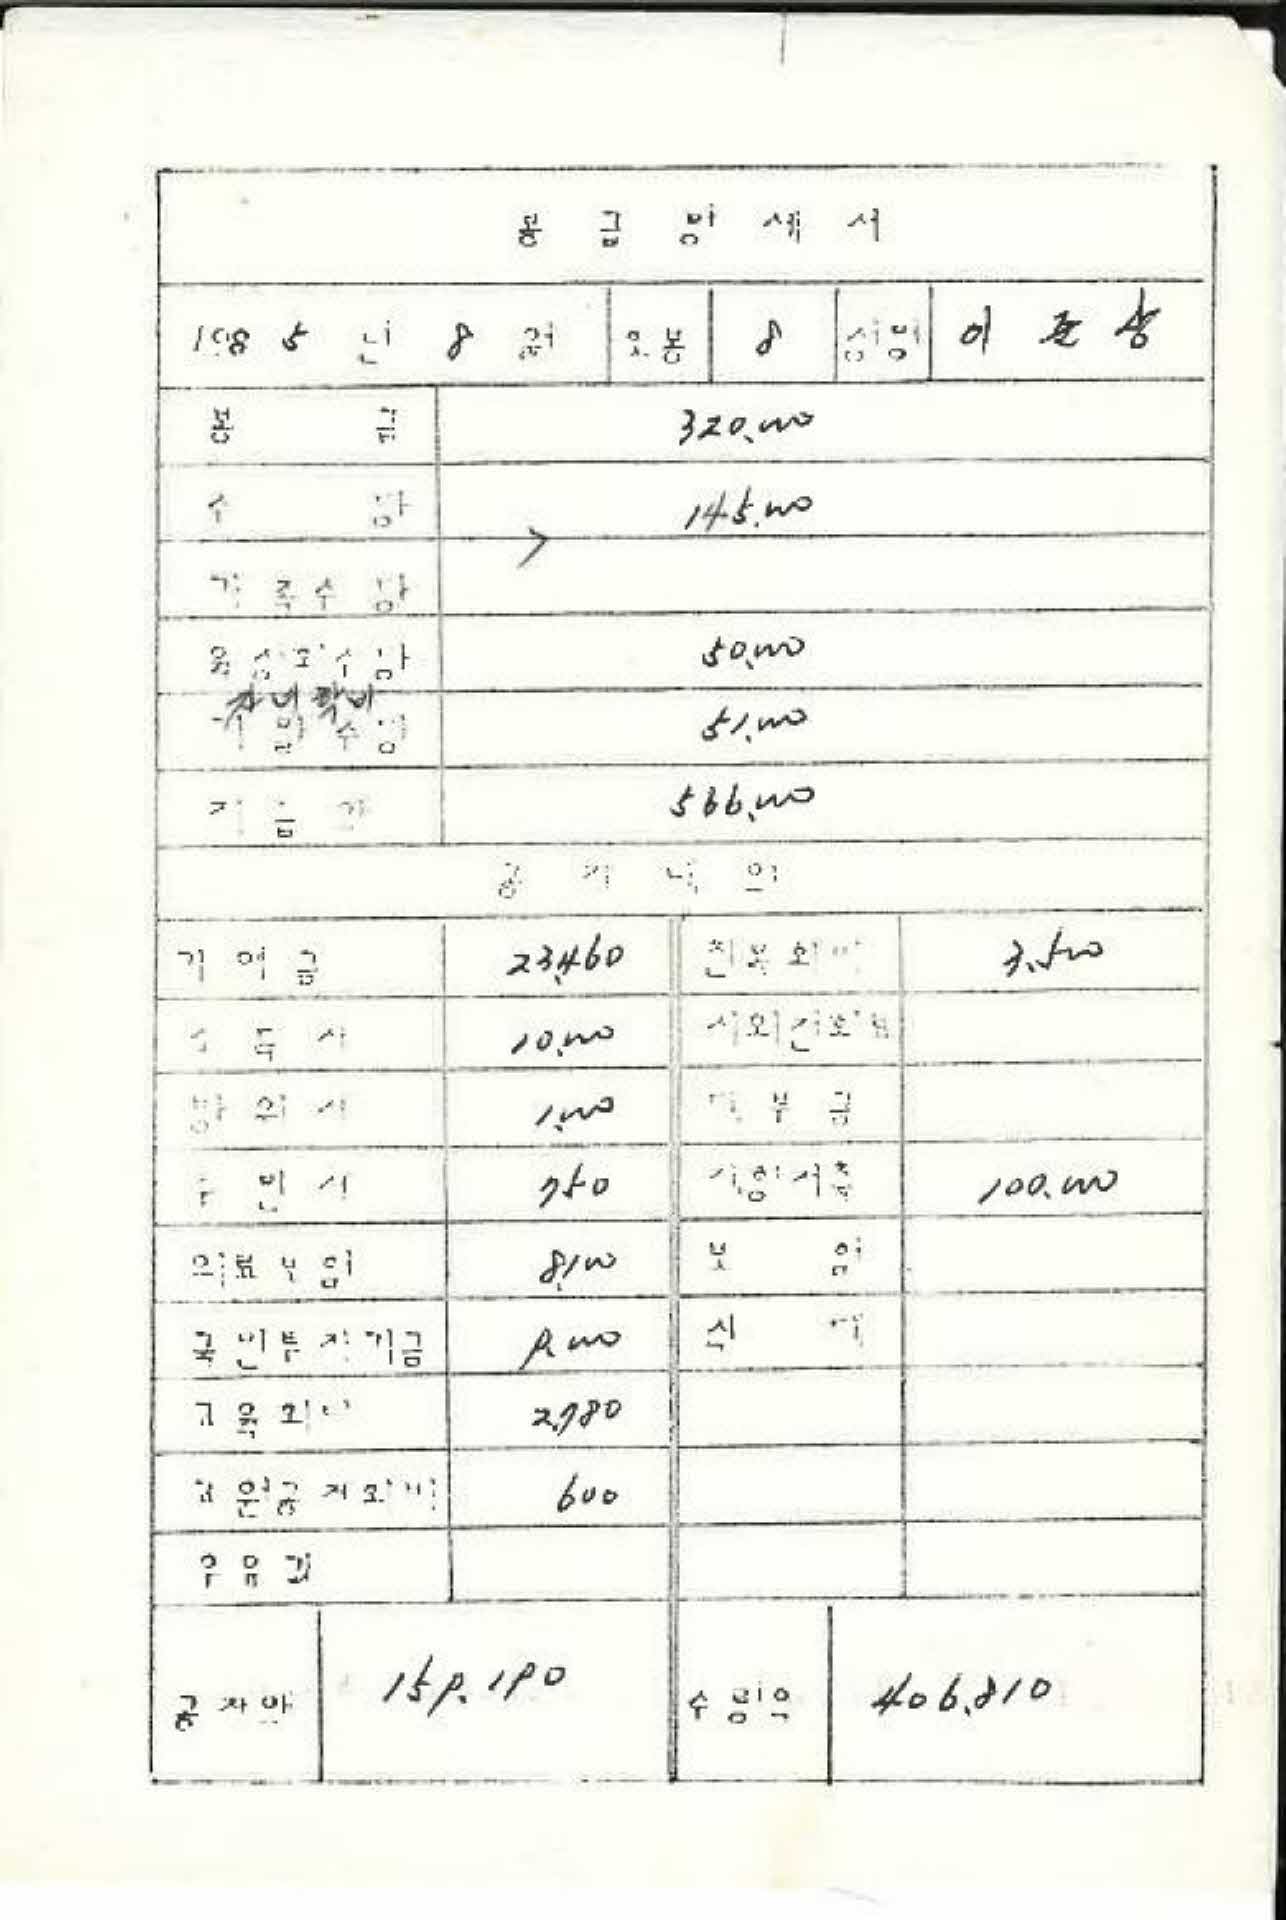 봉급명세서
1985년 8월 호봉 8 성명 이
봉급 320,000
수당 145,000
가족수당
50,000
51,000
지급액 566,000
공제내역
기여금 23,460 친목회비 3,500
소득세 10,000 시외전화료
방위세 1,000 대부금
주민세 750 100,000
의료보험 8,100 보험
국민투자기금 9,000 식대
교육회비 2,780
교원공제회비 600
우유값
공제액 159,190 수령액 406,810